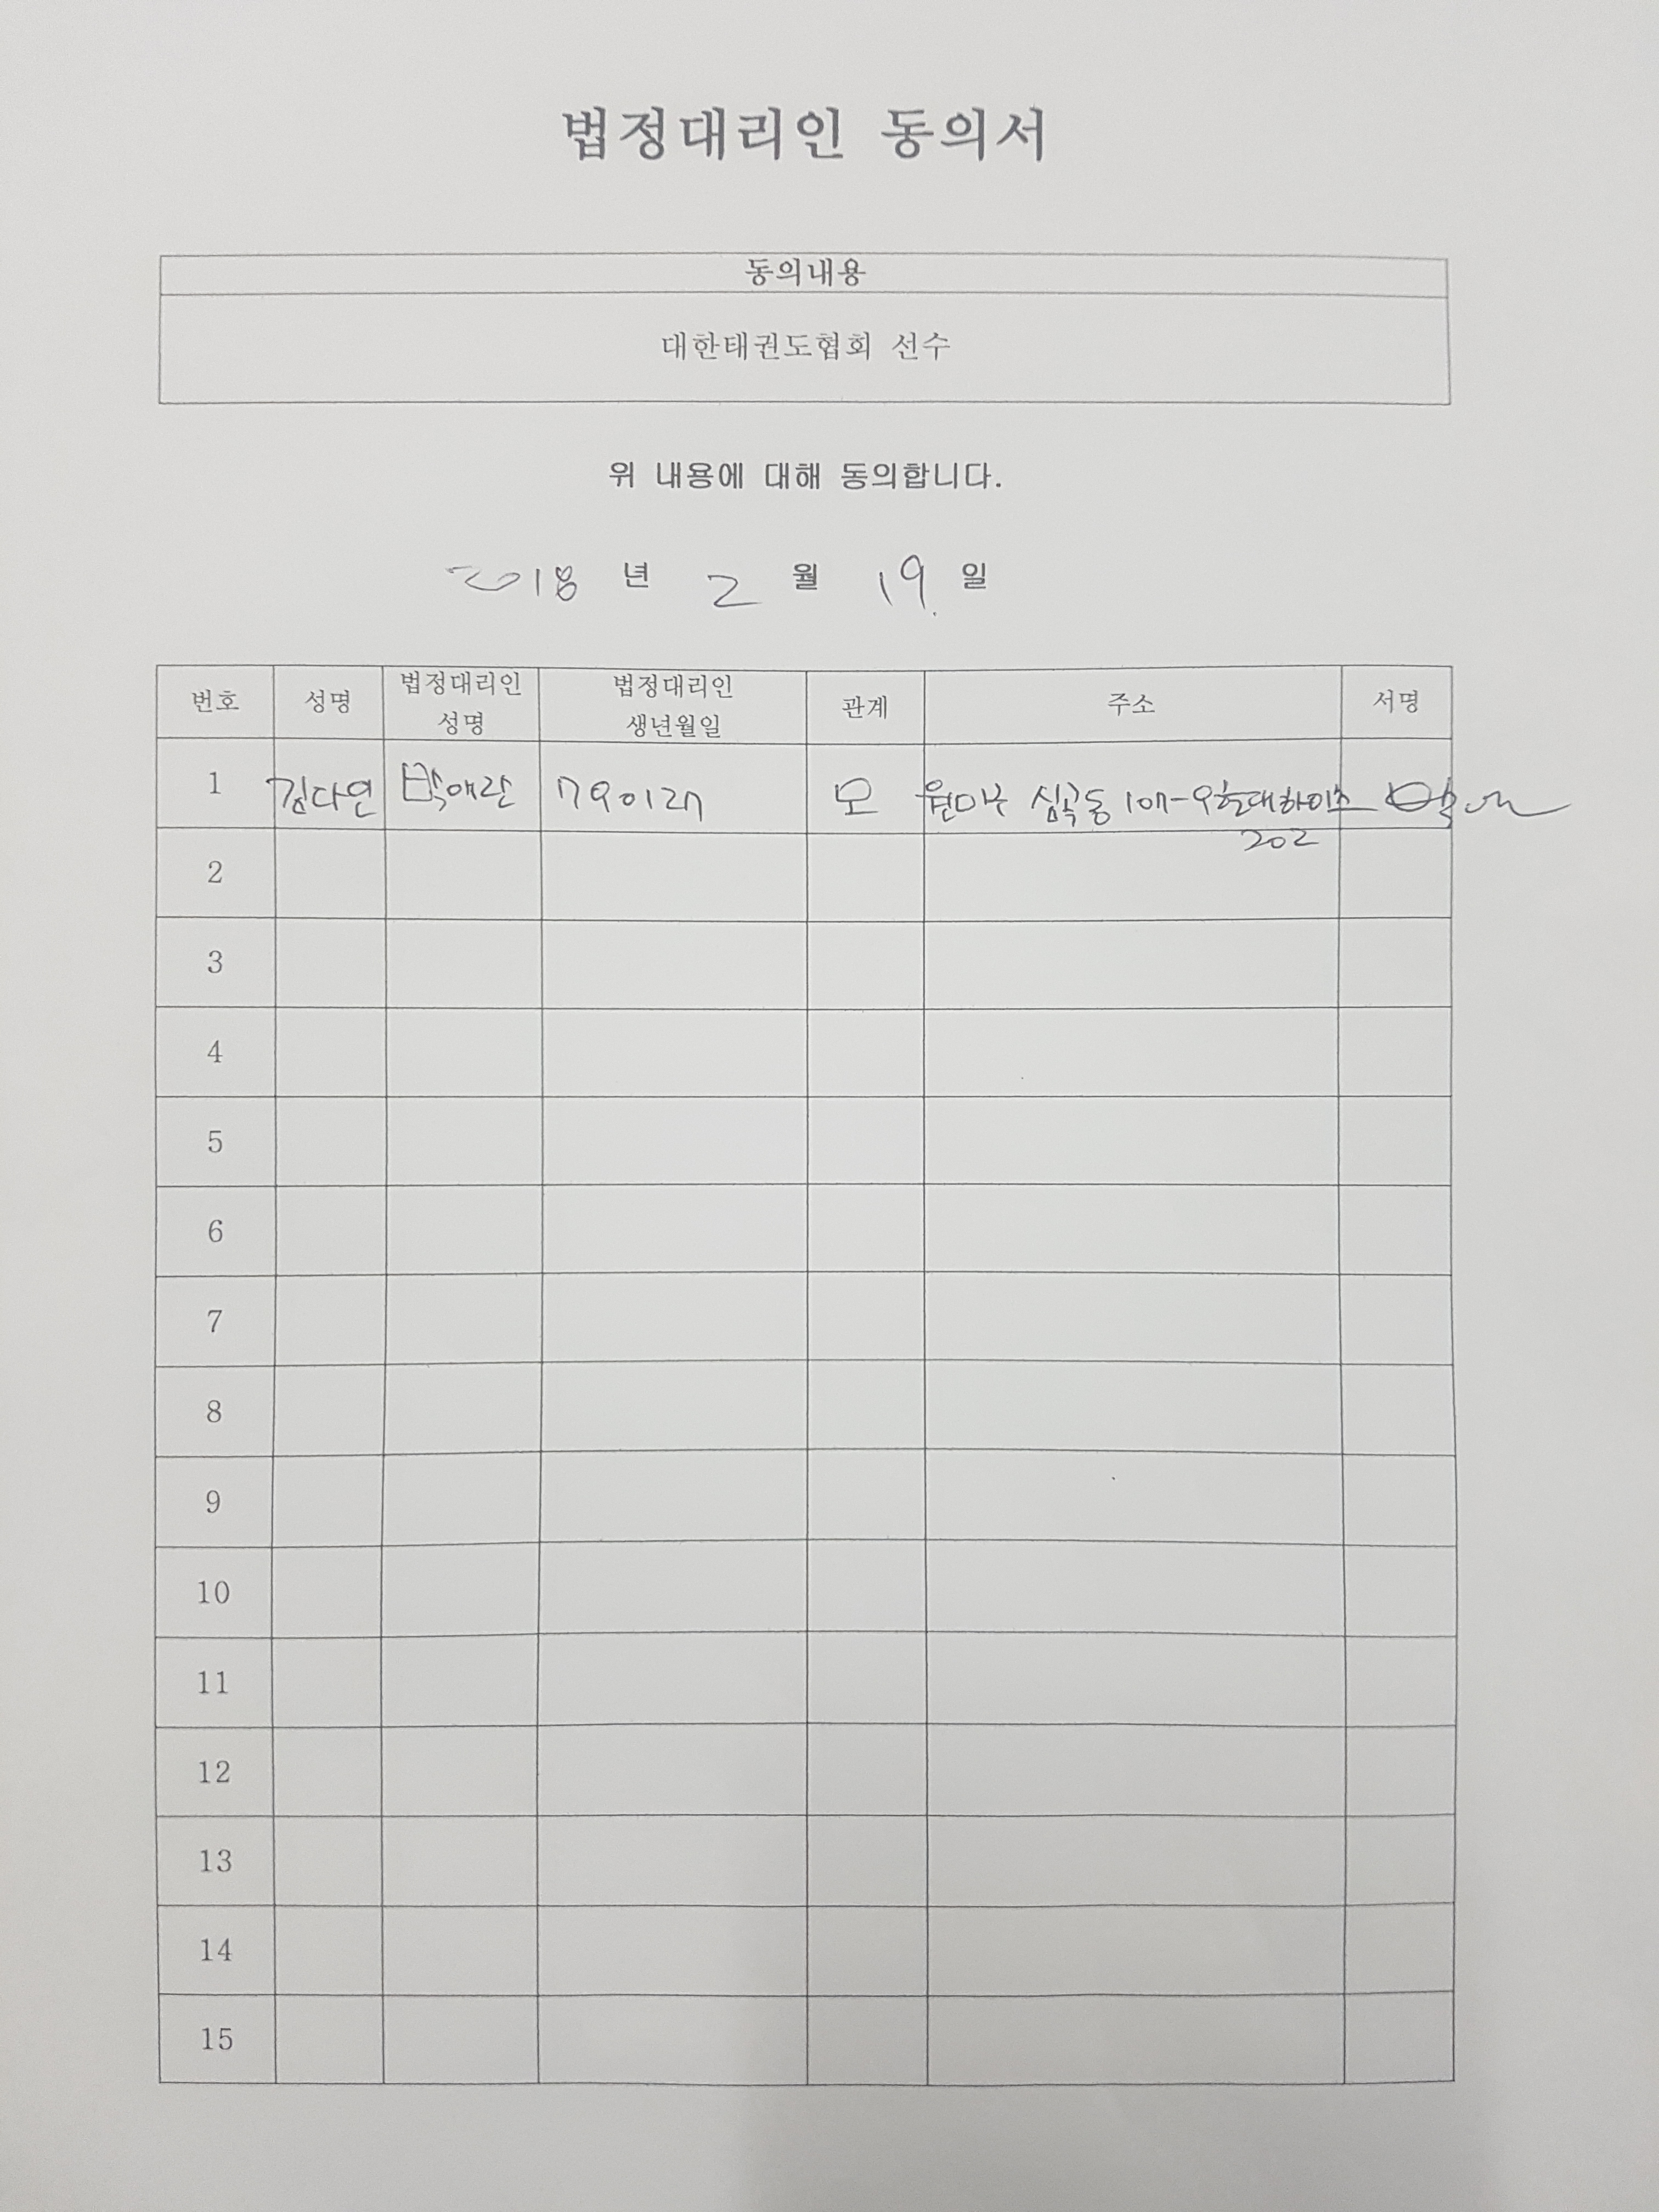 법정대리인 동의서
동의내용
대한태권도협회 선수
위 내용에 대해 동의합니다.
2018 년 2 월 19. 일
번호 성명 법정대리인 성명 법정대리인 생년월일 관계 주소 서명
1 김다연 박애란 790127 모 원미구 심곡동 107-9 현대하이츠
202
2
3
4
5
6
7
8
9
10
11
12
13
14
15